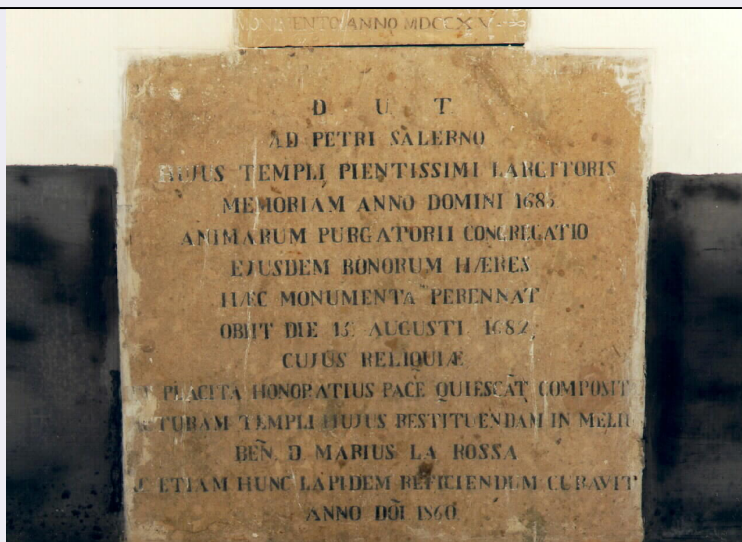 ANNO MDCCXV
D U T
AD PETRI SALERNO
HUJUS TEMPLI PIENTISSIMI LARGITORIS
MEMORIAM ANNO DOMINI 1685
ANIMARUM PURGATORII CONGREGATIO
EJUSDEM BONORUM HÆRES
HÆC MONUMENTA PERENNAT
OBIIT DIE AUGUSTI 1682
CUJUS RELIQUIÆ
PLACITA HONORATIUS PACE QUIESCAT̃ COMPOSIT
TEMPLI HUJUS RESTITUENDAM IN MELIU
BEÑ. D MARIUS LA ROSSA
ETIAM HUNC LAPIDEM REFICIENDUM CURAVIT
ANNO DÕI 1860